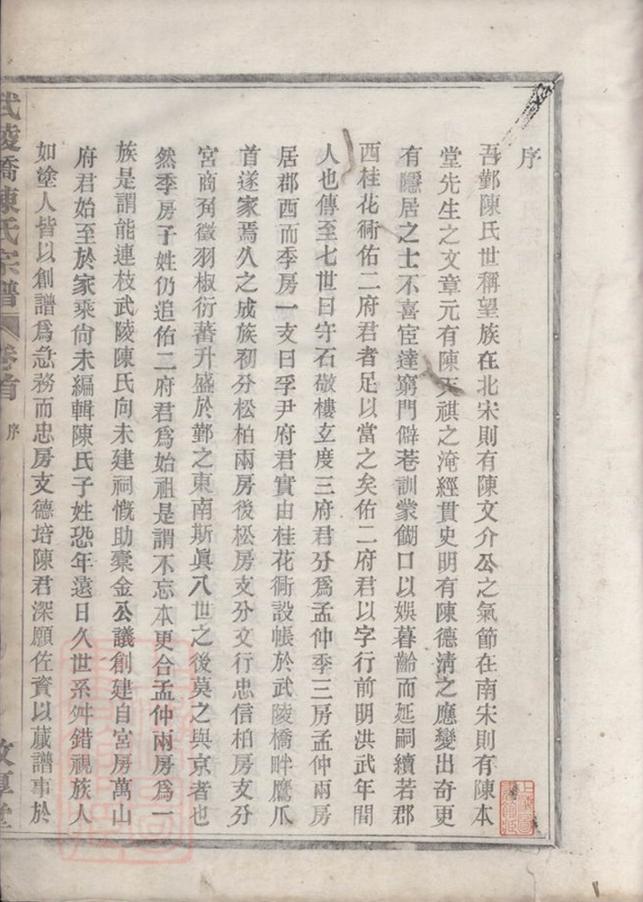 序
吾鄞陳氏世稱望族在北宋則有陳文介公之氣節在南宋則有陳本
堂先生之文章元有陳天祺之淹經貫史明有陳德清之應變出奇更
有隱居之士不喜宦達窮門僻巷訓蒙餬口以娛暮齡而延嗣續若郡
西桂花衕佑二府君者足以當之矣佑二府君以字行前明洪武年間
人也傳至七世曰守石敬樓玄度三府君分爲孟仲季三房孟仲兩房
居郡西而季房一支曰孚尹府君實由桂花衕設帳於武陵橋畔鷹爪
首遂家焉久之成族初分松柏兩房後松房支分文行忠信柏房支分
宮商角徵羽椒衍蕃升盛於鄞之東南斯眞八世之後莫之與京者也
然季房子姓仍追佑二府君爲始祖是謂不忘本更合孟仲兩房爲一
族是謂能連枝武陵陳氏向未建祠慨助橐金公議創建自宮房萬山
府君始至於家乘尙未編輯陳氏子姓恐年遠日久世系舛錯視族人
如塗人皆以創譜爲急務而忠房支德培陳君深願佐資以蕆譜事於
武陵橋陳氏宗譜
卷首
序